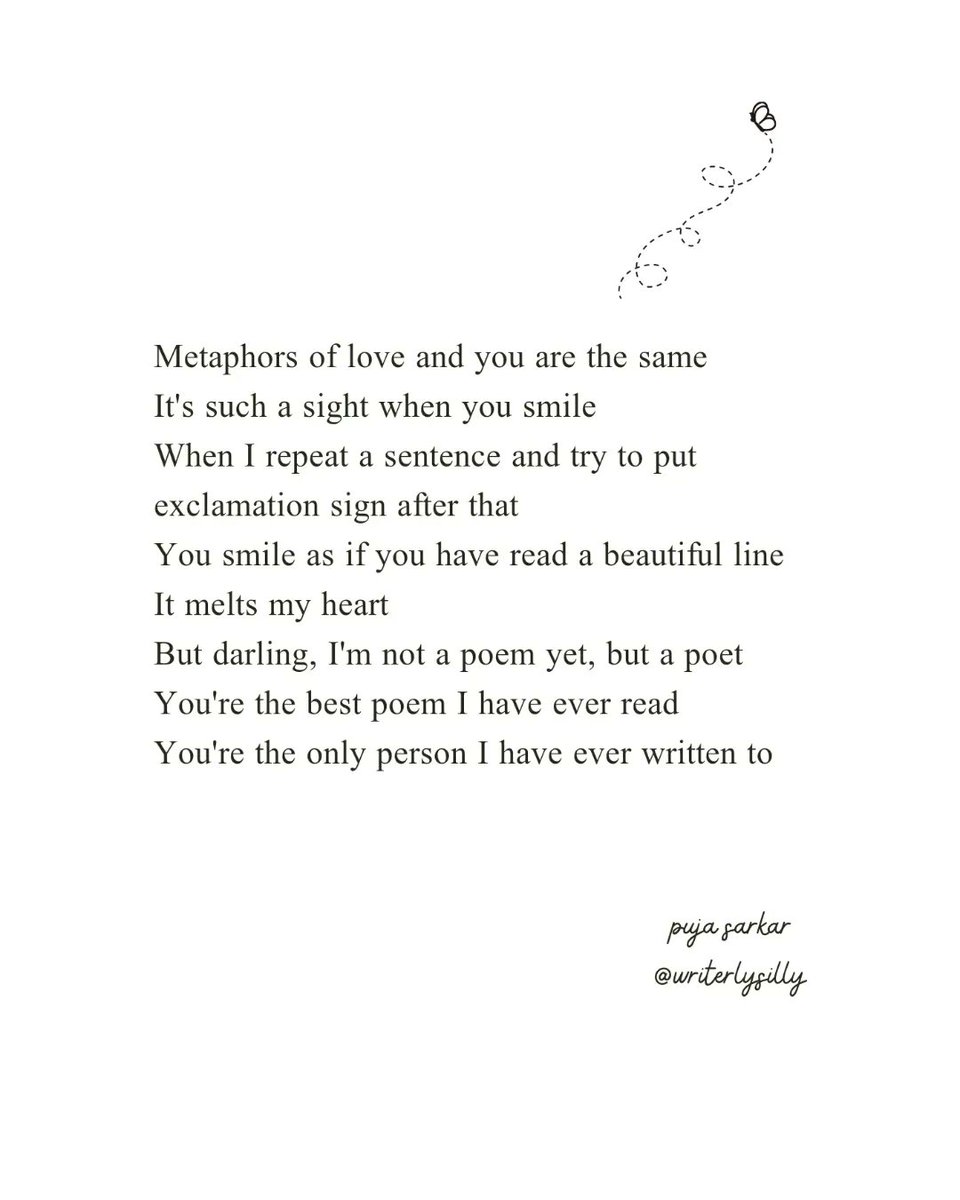 Metaphors of love and you are the same
It's such a sight when you smile
When I repeat a sentence and try to put
exclamation sign after that
You smile as if you have read a beautiful line
It melts my heart
But darling, I'm not a poem yet, but a poet
You're the best poem I have ever read
You're the only person I have ever written to
puja sarkar
@writerlysilly